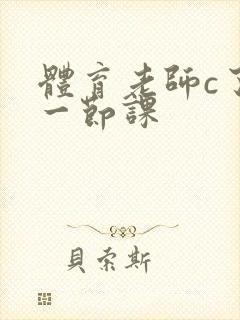 體育老師c了
一節課
貝索斯